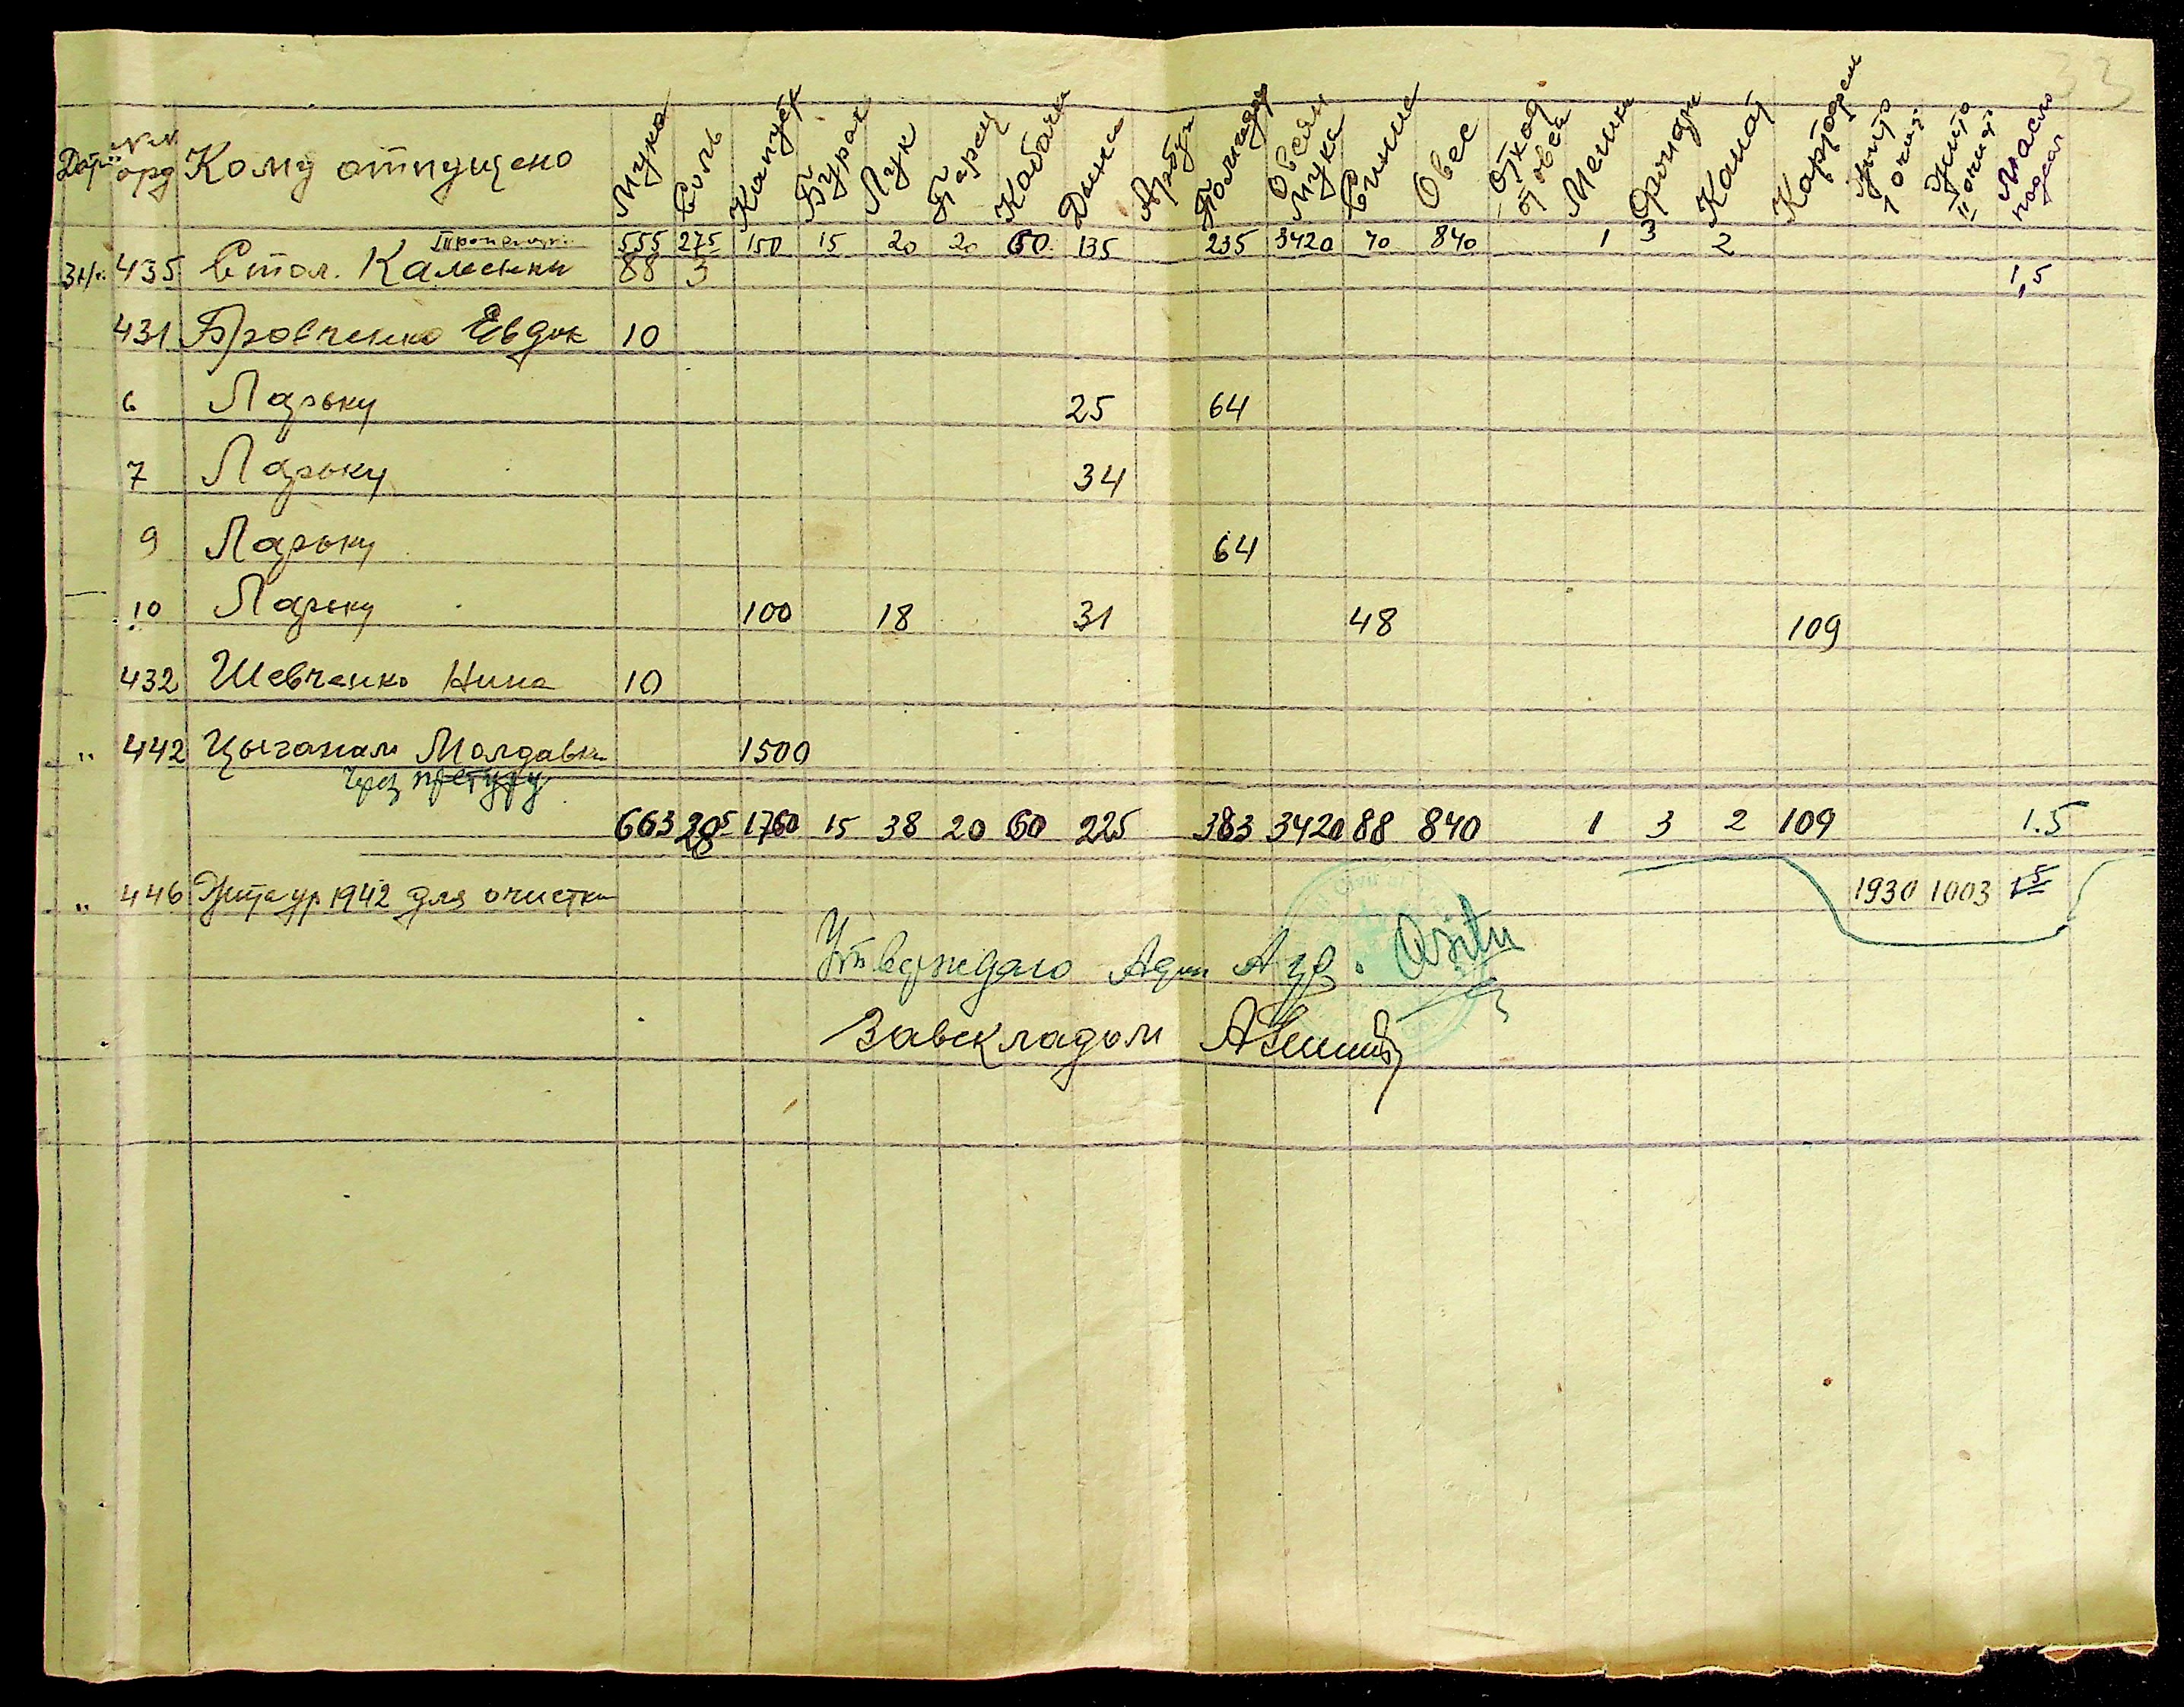 33
Дата №№ орд Кому отпущено Мука Соль Капуста Бурак Лук Перец Кабачки Дыни Арбуз Помидоры Овсян мука Синие Овес Отход от овса Мешки Фонари Канат Картофель Жито I очист Жито II очист Масло подсол
555 275 150 15 20 20 60 135 235 3420 40 840 1 3 2
435 Стол. Каменки 88 3 1,5
431 Бровченко Евдок 10
6 Ларьку 25 64
7 Ларьку 34
9 Ларьку 64
10 Ларьку 100 18 31 48 109
432 Шевченко Нина 10
" 442 Цыганам Молдавки 1500
Через претуру
663 28⁵ 1760 15 38 20 60 225 383 3420 88 840 1 3 2 109 1.5
" 446 Жита ур 1942 для очистки 1930 1003
Утверждаю Адм
Завскладом